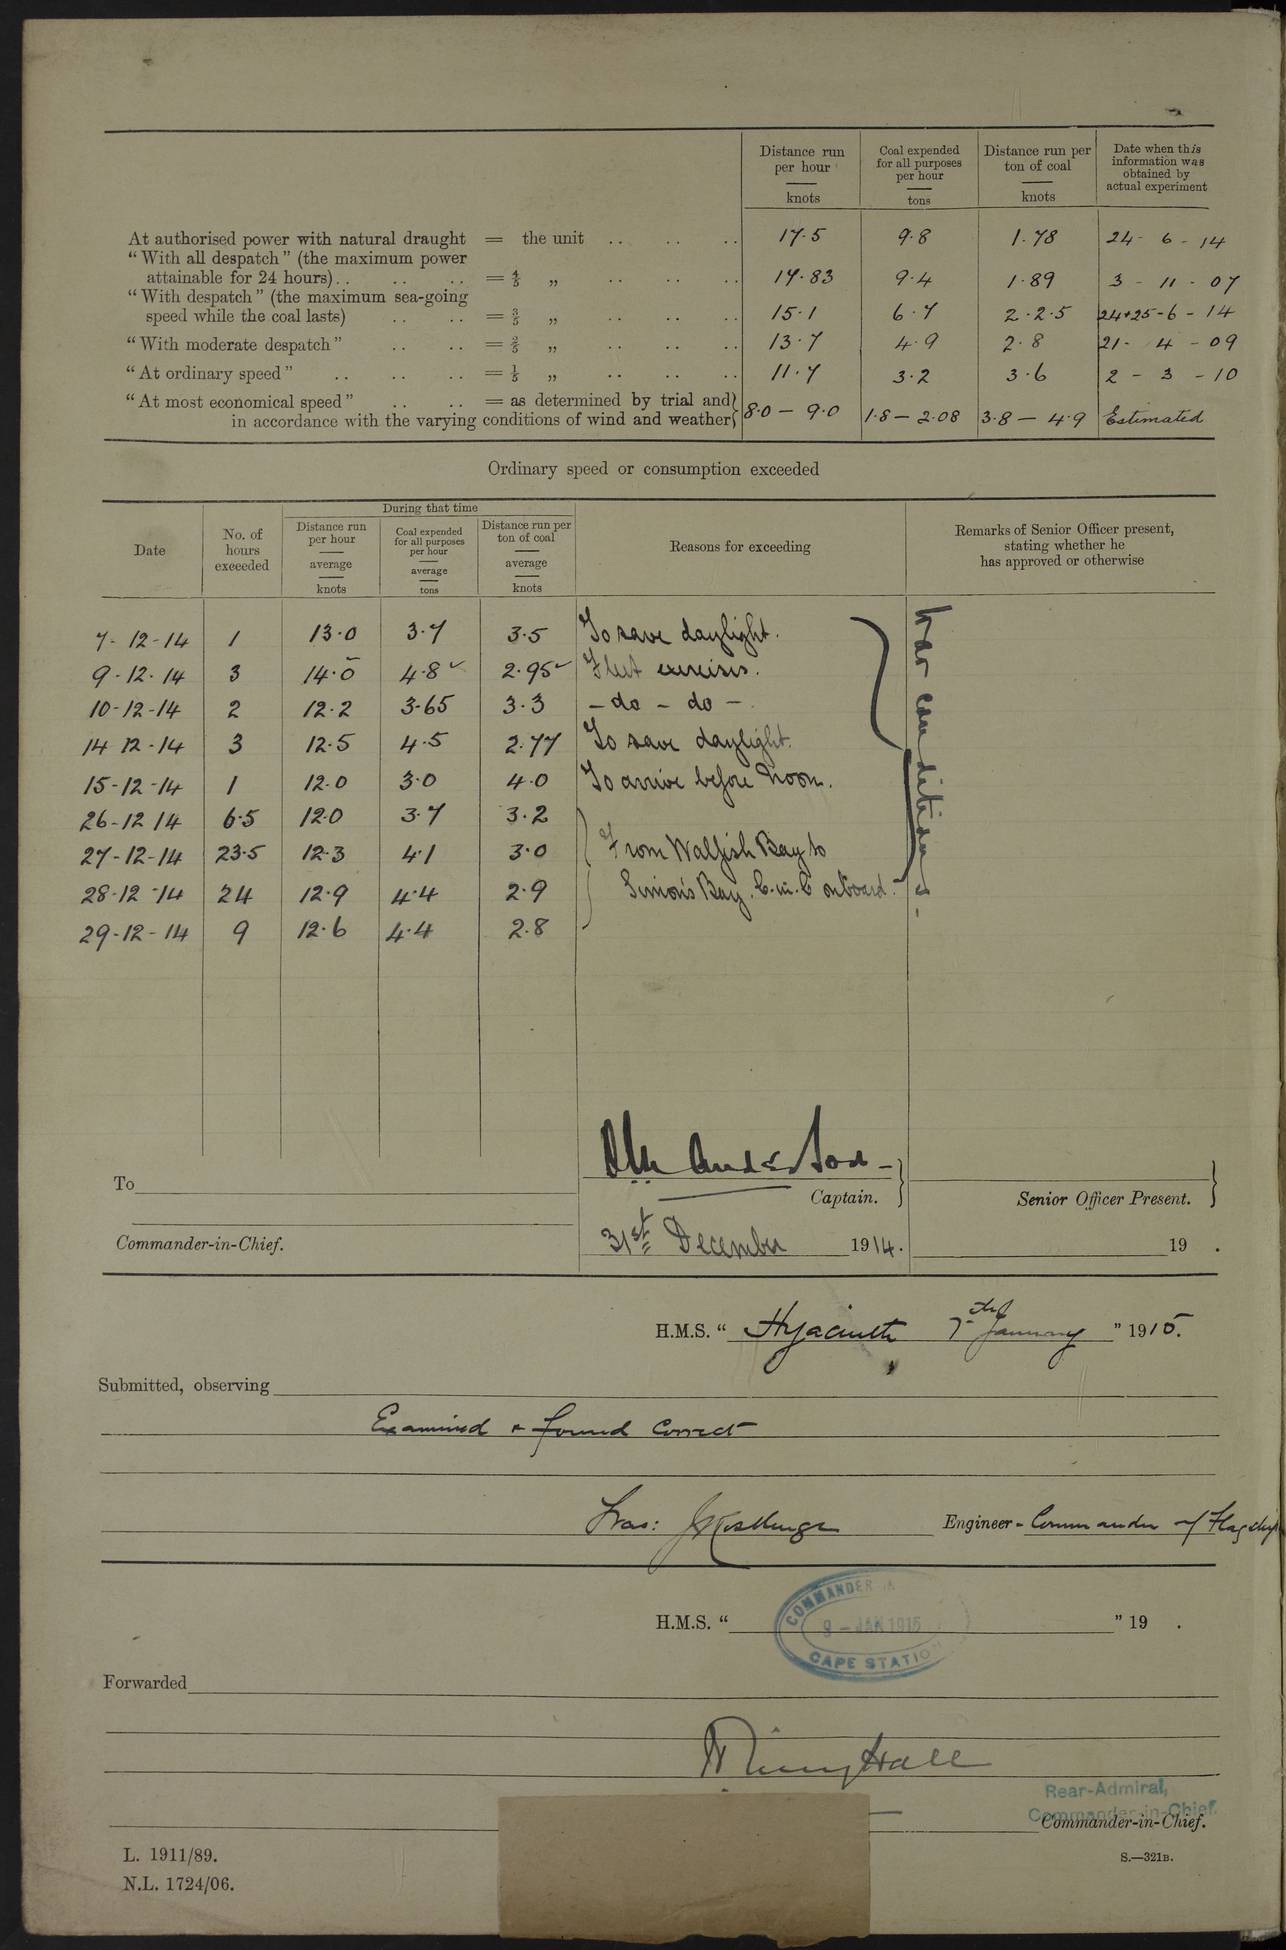 Distance run per hour knots
Coal expended for all purposes per hour tons
Distance run per ton of coal knots
Date when this information was obtained by actual experiment
At authorised power with natural draught = the unit .. .. .. 17.5 9.8 1.78 24 - 6 - 14
"With all despatch" (the maximum power
attainable for 24 hours) .. .. .. = 4/5 „ .. .. .. 17.83 9.4 1.89 3 - 11 - 07
"With despatch" (the maximum sea-going
speed while the coal lasts) .. .. = 3/5 „ .. .. .. 15.1 6.7 2.2.5 24+25-6-14
"With moderate despatch" .. .. = 2/5 „ .. .. .. 13.7 4.9 2.8 21 - 4 - 09
"At ordinary speed" .. .. .. = 1/5 „ .. .. .. 11.7 3.2 3.6 2 - 3 - 10
"At most economical speed" .. .. = as determined by trial and
in accordance with the varying conditions of wind and weather} 8.0 — 9.0 1.8 — 2.08 3.8 — 4.9 Estimated
Ordinary speed or consumption exceeded
During that time
Date
No. of hours exceeded
Distance run per hour average knots
Coal expended for all purposes per hour average tons
Distance run per ton of coal average knots
Reasons for exceeding
Remarks of Senior Officer present, stating whether he has approved or otherwise
7-12-14 1 13.0 3.7 3.5 To save daylight.
9-12-14 3 14.0 4.8 2.95 Fleet exercises.
10-12-14 2 12.2 3.65 3.3 - do - do -
14 12-14 3 12.5 4.5 2.77 To save daylight.
15-12-14 1 12.0 3.0 4.0 To arrive before Noon.
26-12 14 6.5 12.0 3.7 3.2
27-12-14 23.5 12.3 4.1 3.0 From Walfish Bay to
28-12-14 24 12.9 4.4 2.9 Simon's Bay. C.in.C onboard.
29-12-14 9 12.6 4.4 2.8
War conditions.
Anderson
To
Captain.
Senior Officer Present.
Commander-in-Chief.
31st December 1914.
19 .
H.M.S. " Hyacinth 7th January " 1915.
Submitted, observing
Examined & found correct
Engineer-Commander of Flagship
COMMANDER IN
9 - JAN 1915
CAPE STATION
H.M.S. " " 19 .
Forwarded
King Hall
Rear-Admiral,
Commander-in-Chief.
Commander-in-Chief.
L. 1911/89.
N.L. 1724/06.
S.—321B.